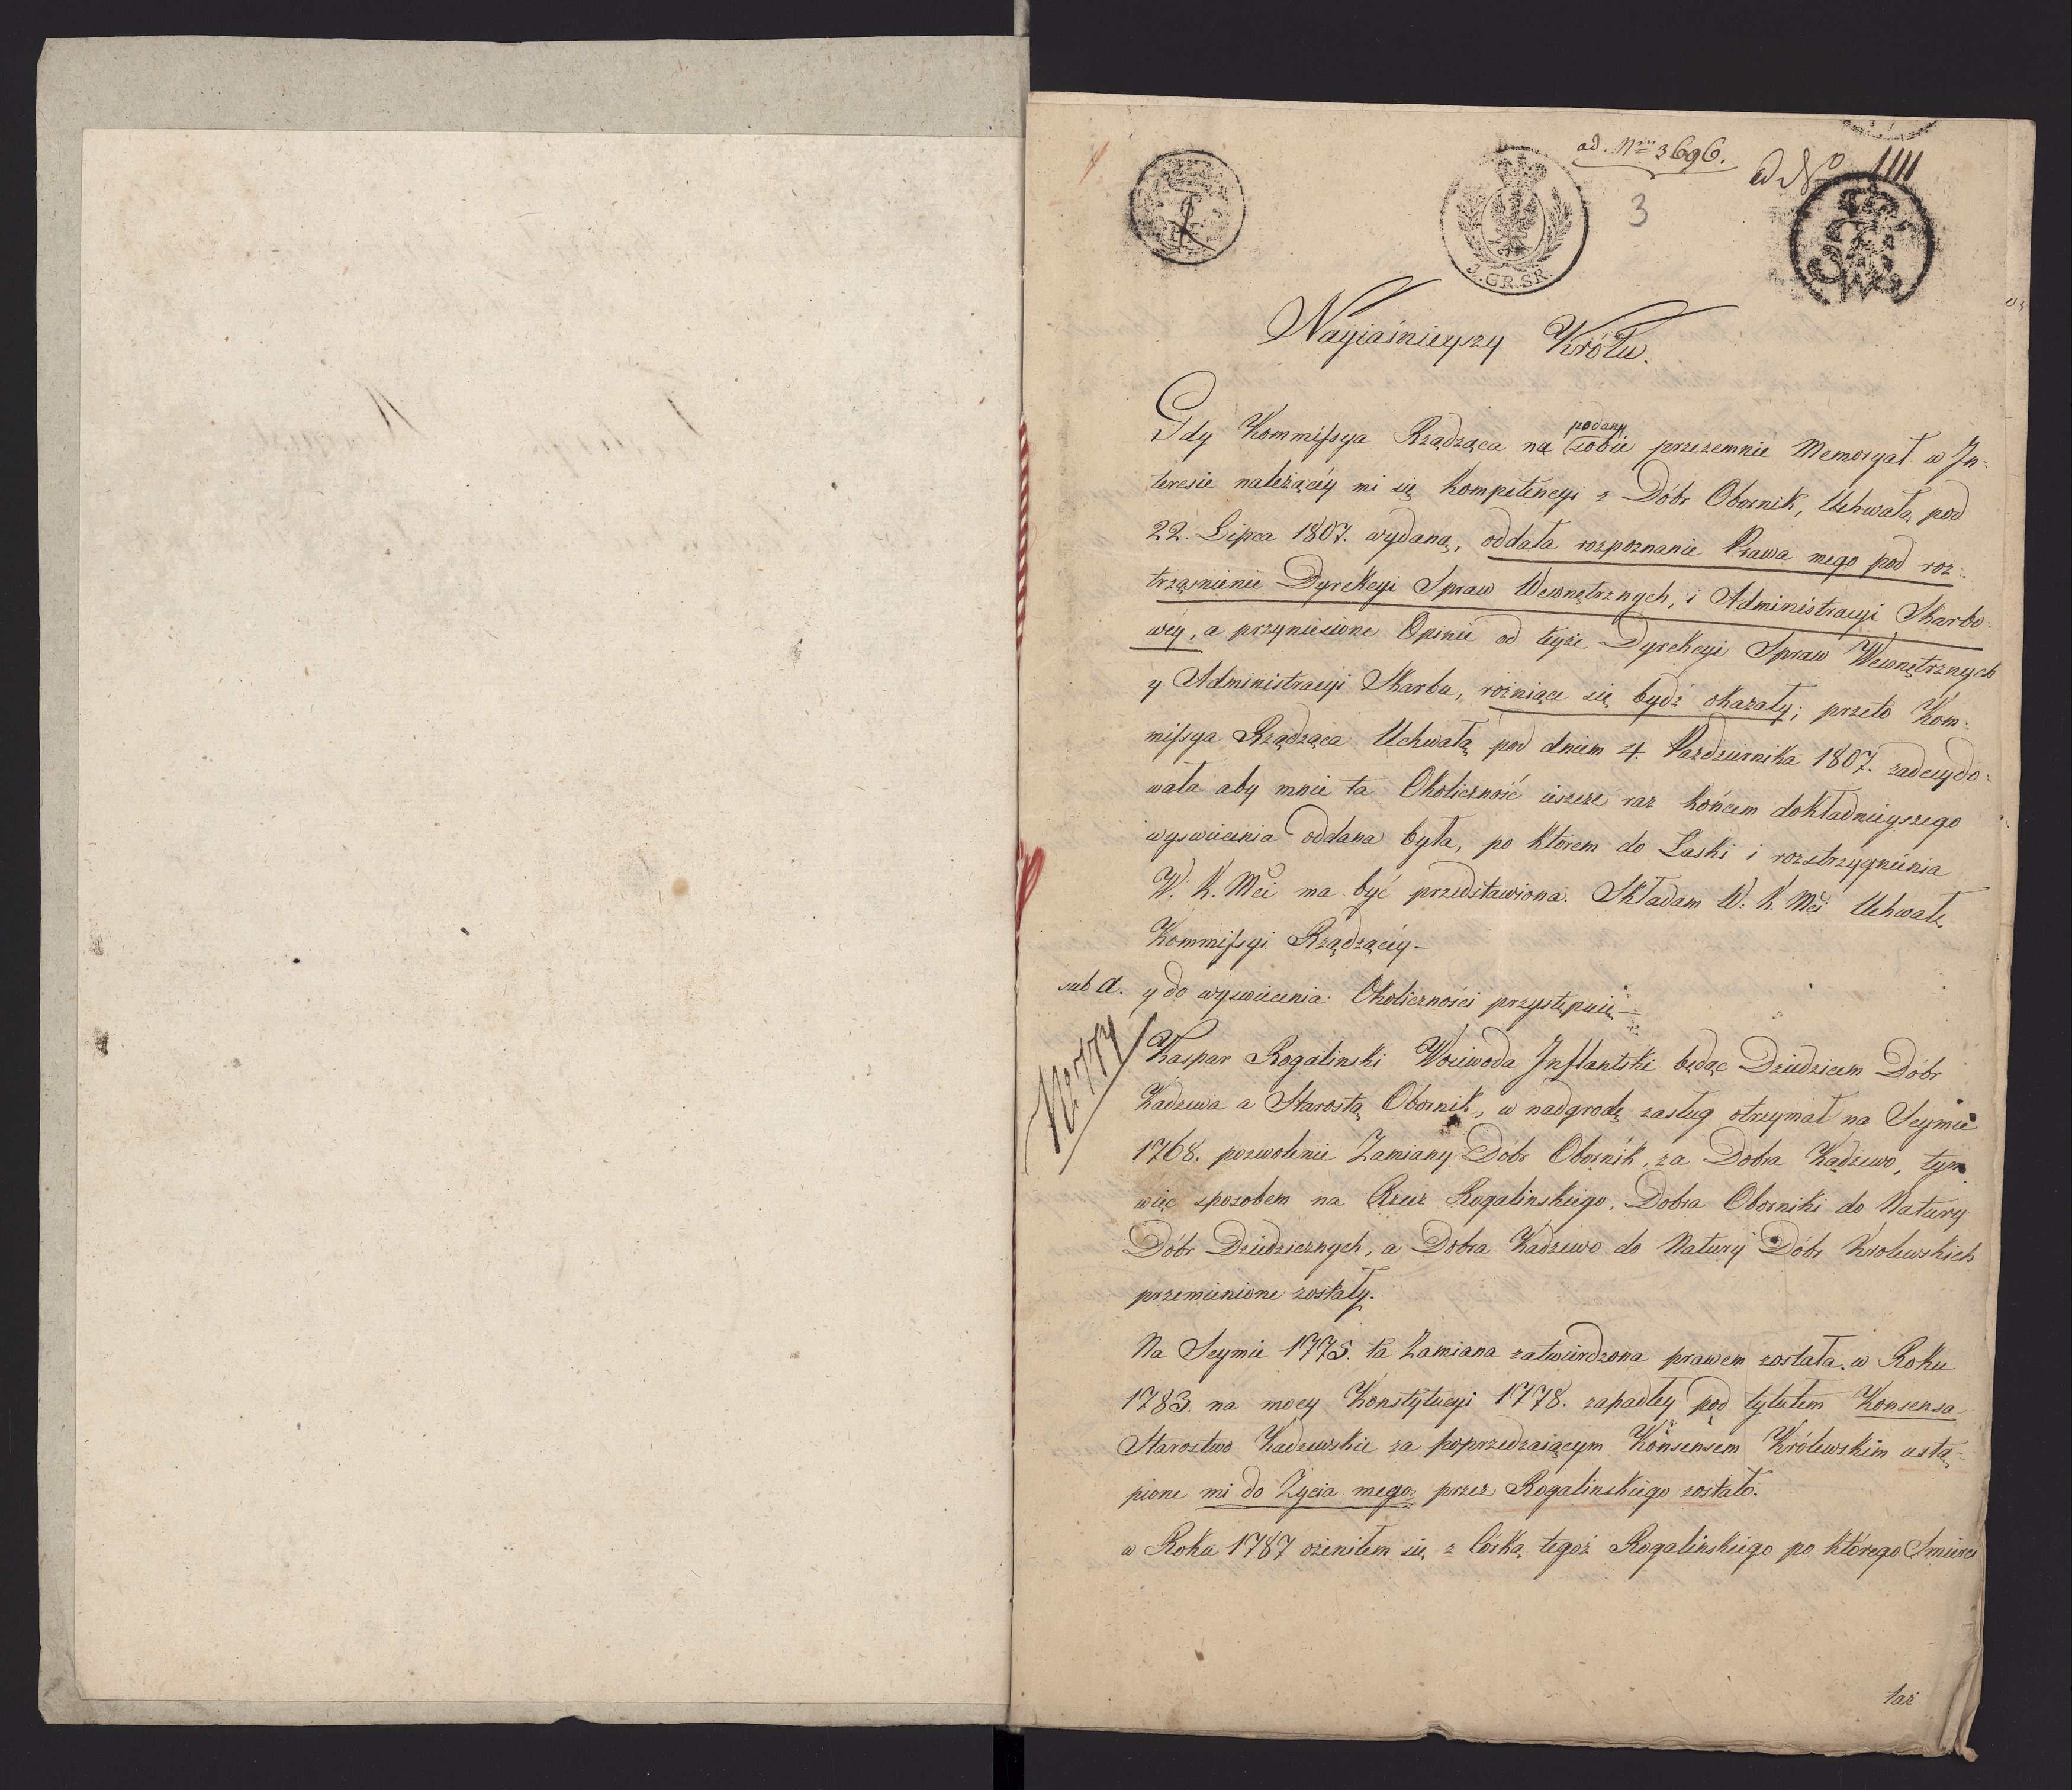 ad. Nrm 3696.
ad No 1111
3
3.GR.SR.
Nayiaśnieyszy Królu.
podany
Gdy Kommissya Rządząca na sobie przezemnie Memoryał w In-
teresie należącéy mi się Kompetencyi z Dóbr Obornik, Uchwałą pod
22. Lipca 1807. wydaną, oddała rozpoznanie Prawa mego pod roz-
trząśnienie Dyrekcyi Spraw Wewnętrznych, i Administracyi Skarbo-
wéy, a przyniesione Opinie od teyże Dyrekcyi Spraw Wewnętrznych
y Administracyi Skarbu, rożniące się bydź okazały; przeto Kom-
missya Rządząca Uchwałą pod dniem 4. Pazdziernika 1807. zadecydo-
wała aby mnie ta Okoliczność ieszcze raz końcem dokładnieyszego
wyswiecenia oddana była, po którem do Łaski i rozstrzygnienia
W. K. Mci ma być przedstawiona. Składam W. K. Mci Uchwałę
Kommissyi Rządzącéy—
sub a. y do wyswiecenia Okoliczności przystępuię—
No 777
Kaspar Rogalinski Woiewoda Inflantski będąc Dziedzicem Dóbr
Kadzewa a Starostą Obornik, w nadgrodę zasług otrzymał na Seymie
1768. pozwolenie Zamiany Dóbr Obornik, za Dobra Kądzewo, tym
więc sposobem na Rzecz Rogalinskiego, Dobra Oborniki do Natury
Dóbr Dziedzicznych, a Dobra Kadzewo do Natury Dóbr Krolewskich
przemienione zostały.
Na Seymie 1775. ta Zamiana zatwierdzona prawem została. w Roku
1783. na mocy Konstytucyi 1778. zapadłey pod tytułem Konsensa
Starostwo Kadzewskie za poprzedzaiącym Konsensem Królewskim ustą-
pione mi do Życia mego, przez Rogalinskiego zostało.
w Roku 1787 ożeniłem się z Córką tegoż Rogalinskiego po którego Smierci
taż